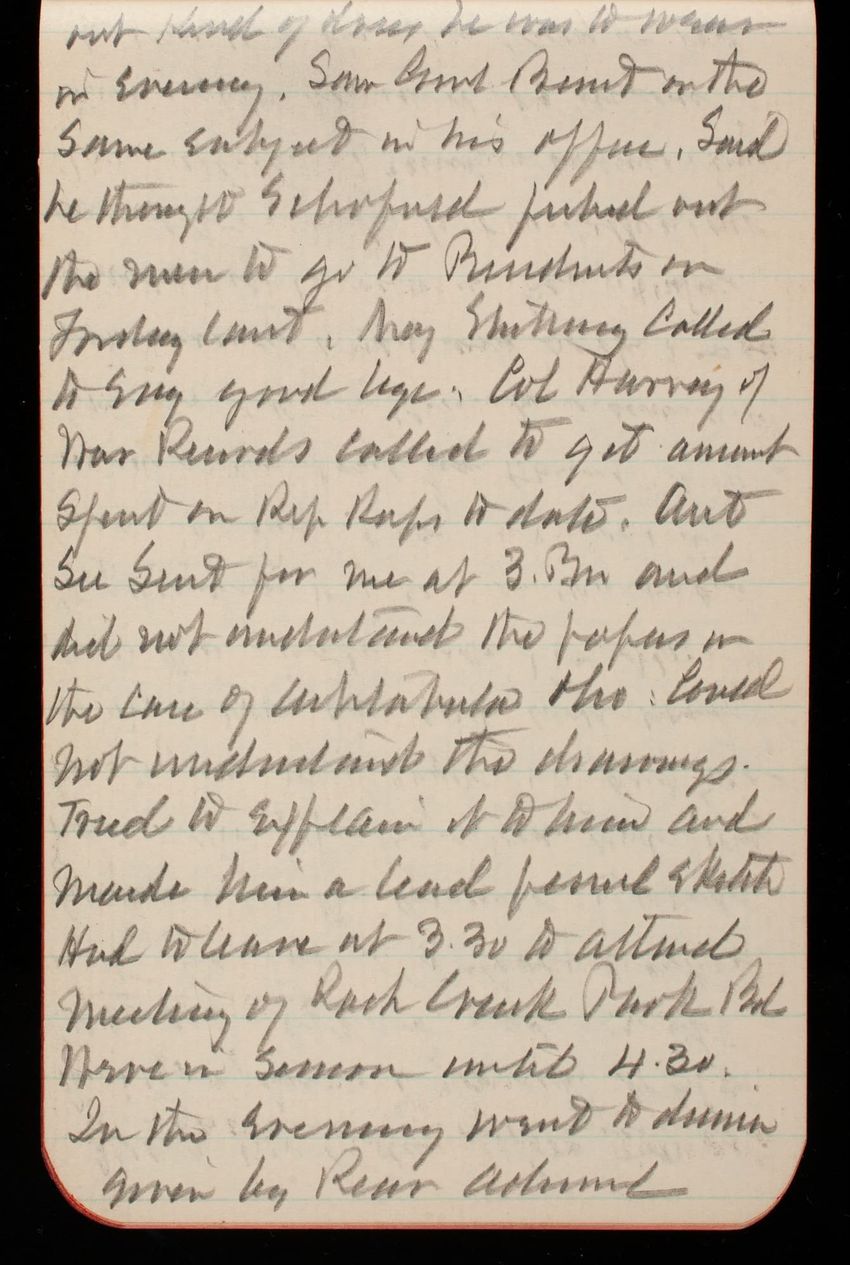 out kind of dress he was to wear
in Evening. Saw Genl Benet on the
Same Subject in his office. Said
he thought Schofield picked out
the men to go to Presidents on
Friday last. Maj called
to Say good bye. Col Harvey of
War Records called to get amount
Spent on Rip Raps to date. Asst
Sec Sent for me at 3. Pm and
did not understand the papers in
the case of Ashtabula Ohio. Could
not understand the drawings.
Tried to Explain it to him and
Made him a lead pencil Sketch
Had to leave at 3.30 to attend
Meeting of Rock Creek Park Bd
Were in Session until 4.30.
In the Evening went to dinner
given by Rear Admiral